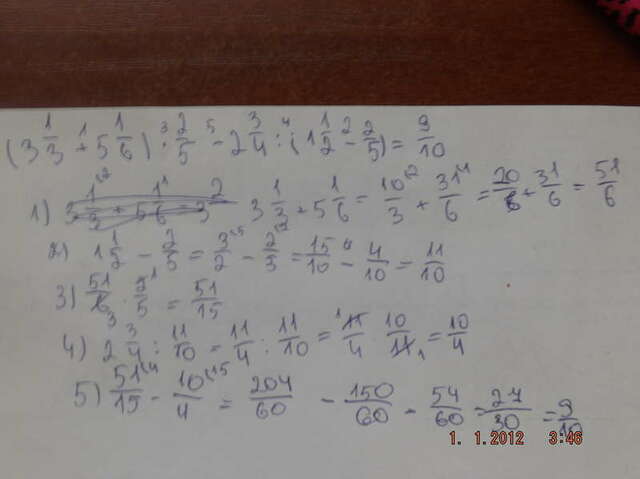 (3 1/3 + 5 1/6) · 2/5 - 2 3/4 : (1 1/2 - 2/5) = 9/10
1) 3 1/3 + 5 1/6 = 10/3 + 31/6 = 20/6 + 31/6 = 51/6
2) 1 1/2 - 2/5 = 3/2 - 2/5 = 15/10 - 4/10 = 11/10
3) 51/6 · 2/5 = 51/15
4) 2 3/4 : 11/10 = 11/4 : 11/10 = 11/4 · 10/11 = 10/4
5) 51/15 - 10/4 = 204/60 - 150/60 - 54/60 = 27/30 = 9/10
1. 1.2012 3:46